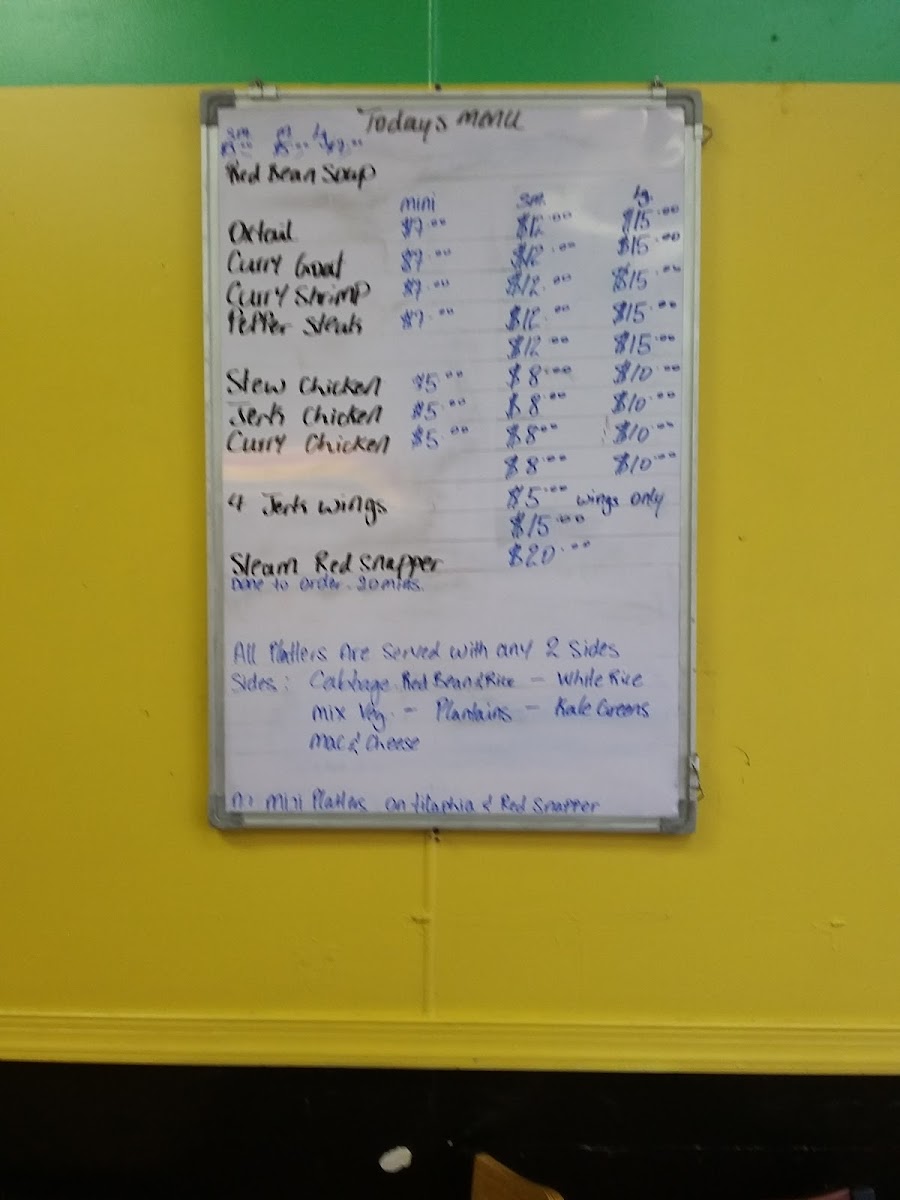 Todays Menu
sm. M Lg
$5.00 $7.00
Red Bean Soup
mini sm. Lg.
Oxtail $7.00 $12.00 $15.00
Curry Goat $7.00 $12.00 $15.00
Curry Shrimp $7.00 $12.00 $15.00
Pepper Steak $7.00 $12.00 $15.00
$12.00 $15.00
Stew Chicken $5.00 $8.00 $10.00
Jerk Chicken $5.00 $8.00 $10.00
Curry Chicken $5.00 $8.00 $10.00
$8.00 $10.00
4 Jerk wings $5.00 wings only
$15.00
Steam Red Snapper $20.00
Done to order. 20 mins.
All Platters Are Served with any 2 Sides
Sides: Cabbage. Red Bean & Rice - White Rice
mix Veg. - Plantains - Kale Greens
Mac & Cheese
no mini Platters on tilaphia & Red Snapper